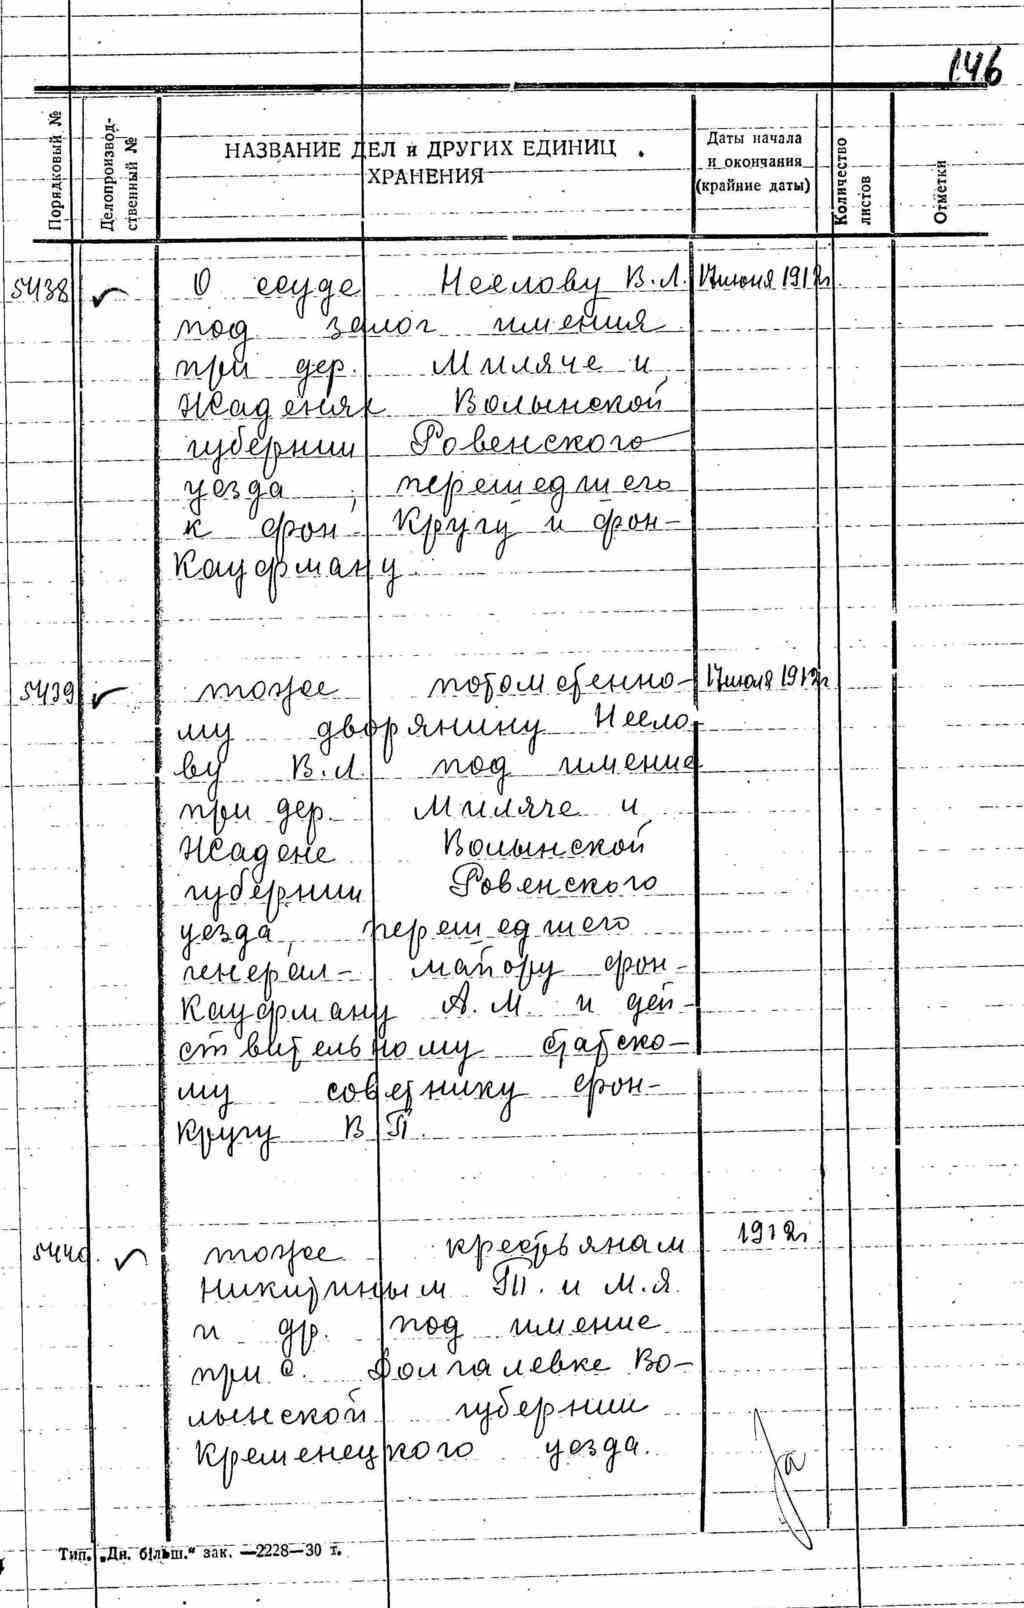 146
Порядковый №
Делопроизвод-
ственный №
НАЗВАНИЕ ДЕЛ и ДРУГИХ ЕДИНИЦ
ХРАНЕНИЯ
Даты начала
и окончания
(крайние даты)
Количество
листов
Отметки
5438 ✓ О ссуде Неелову В.Л. 17 июня 1912г
под залог имения
при дер. Миляче и
Жаденях Волынской
губернии Ровенского
уезда, перешедшего
к фон Кругу и фон-
Кауфману.
5439 ✓ тоже потомственно- 17 июля 1912г
му дворянину Неело-
ву В.Л. под имение
при дер. Миляче и
Жадене Волынской
губернии Ровенского
уезда, перешедшего
генерал-майору фон-
Кауфману А.М. и дей-
ствительному статско-
му советнику фон-
Кругу В.П.
5440. ✓ тоже крестьянам 1912г
Никитиным Т. и М.Я.
и др. под имение
при с. Долгалевке Во-
лынской губернии
Кременецкого уезда.
Тип. „Дн. більш." зак. —2228—30 т.